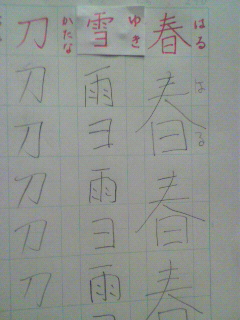 春春春春
はるはる
雪雨ヨ雨ヨ雨
ゆき
刀刀刀刀刀刀
かたな